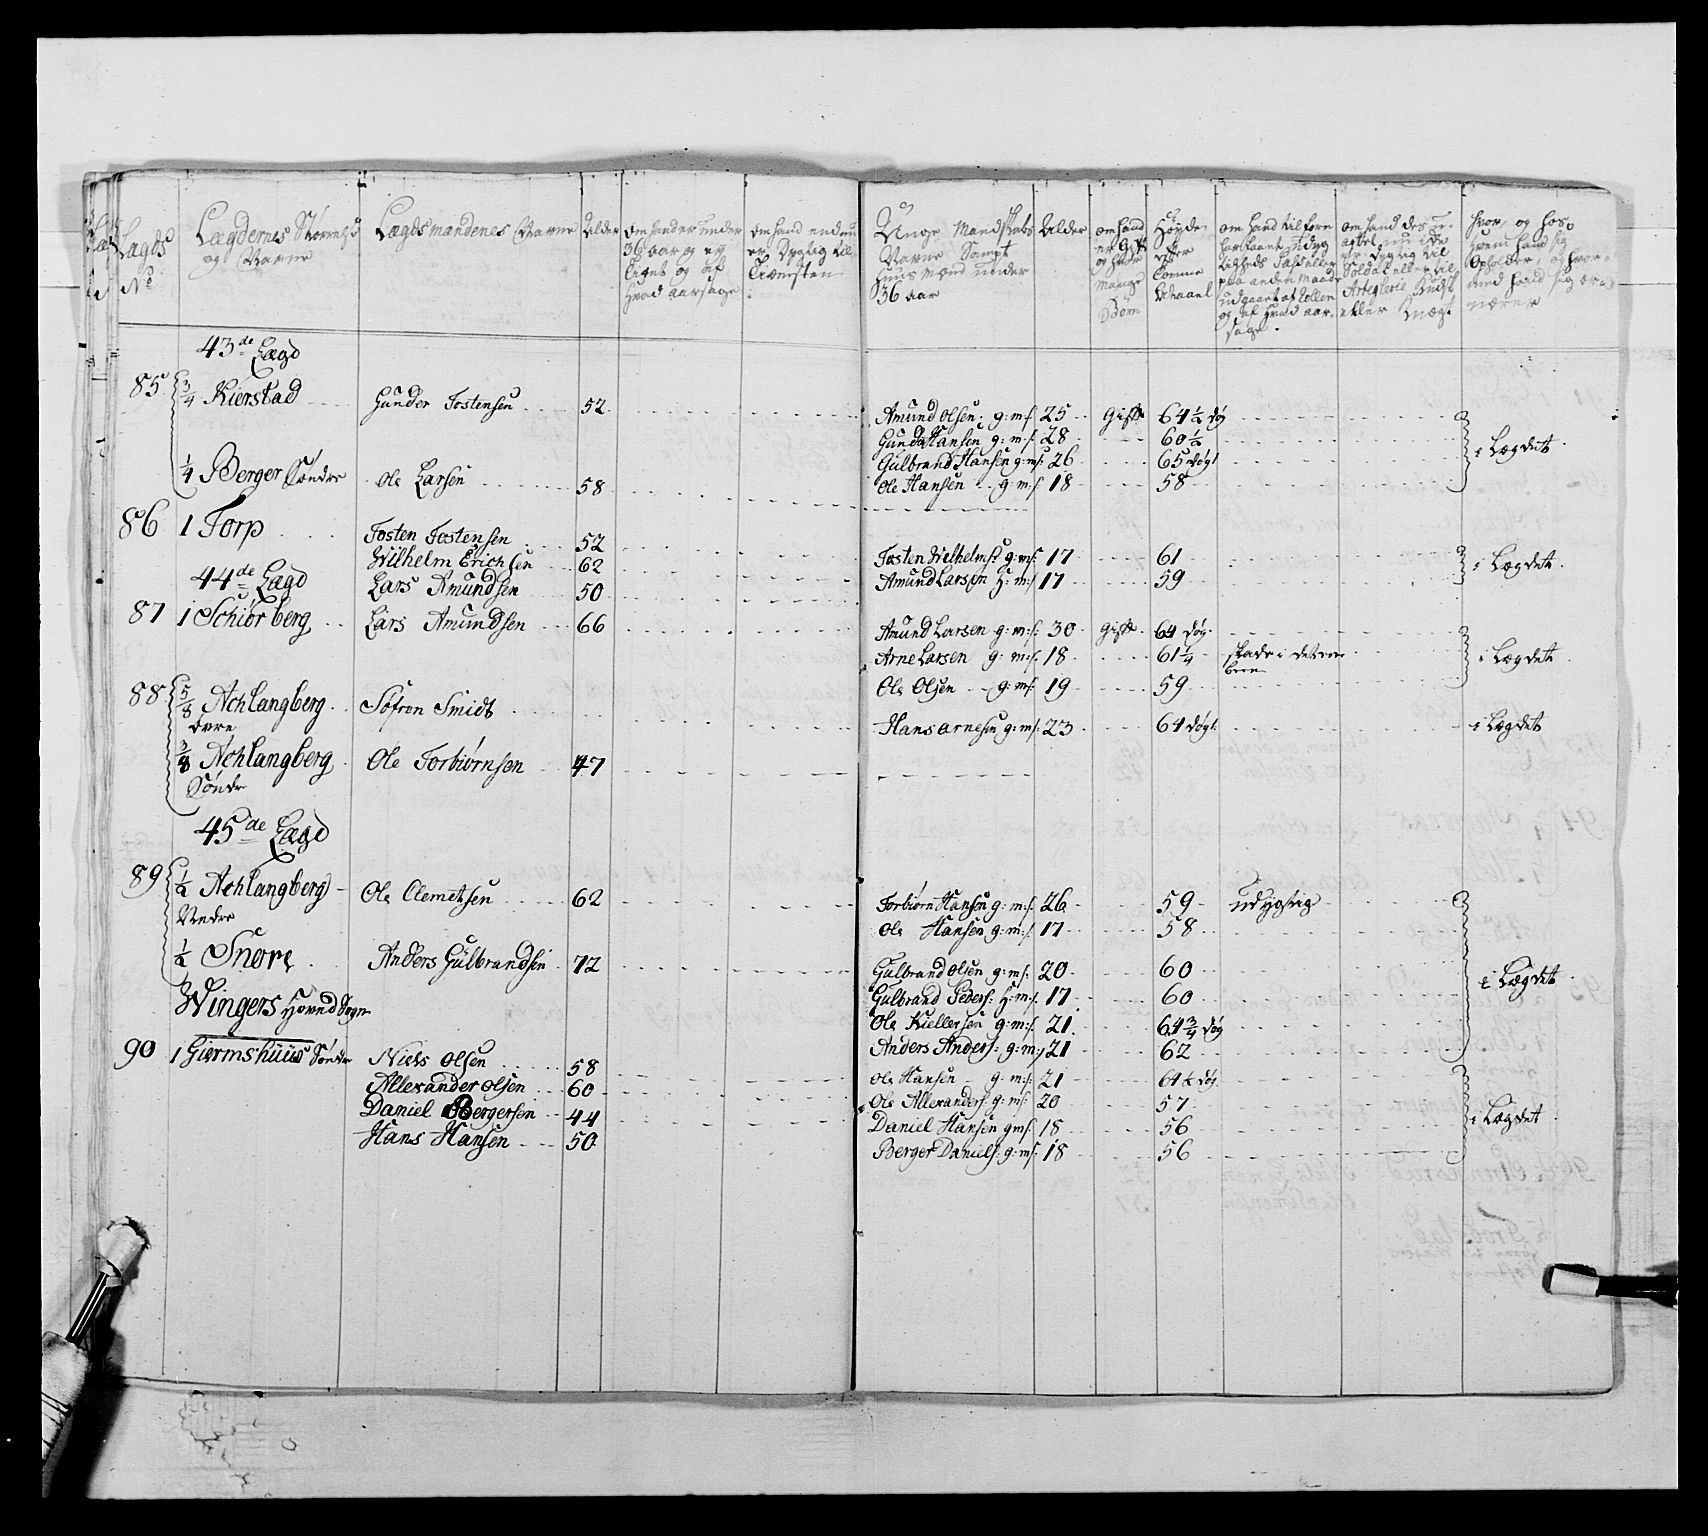 Lægds No
Lægdernes Størrelse og Navne
Lægdsmændenes Navne
Alder
om hand er under 36 aar og ey tient og af hvad aarsage
om hand endnu er dygtig til Tienesten
Unge Mandskabs Navne Sampt Huusmænd under 36 aar
Alder
om hand er Gift og hvor mange Børn
Høyde efter Tomme
om hand til forn
om hand des u-
hvor, og hos hvem hand sig Opholder, og hvor-med hand sig er-nærer
43de Lægd
85 3/4 Kierstad Gunder Tostensen 52
Amund Olsen g:m:s: 25 Gift 64 1/2 døg
Gund Hansen g:m:s: 28 60 1/2
Gulbrand Hansen g:m:s: 26 65 døgt i Lægdet
1/4 Berger Søndre Ole Larsen 58
Ole Hansen g:m:s: 18 58
86 1 Torp Tosten Tostensen 52
Wilhelm Erichsen 62 Tosten Wilhelms: g:m:s: 17 61 i Lægdet
44de Lægd Lars Amundsen 50 Amund Larsen H:m:s: 17 59
87 1 Schiørberg Lars Amundsen 66 Amund Larsen g:m:s: 30 Gift 64 døg
Arne Larsen g:m:s: 18 61 1/4 skade i det ene been i Lægdet
Ole Olsen g:m:s: 19 59
88 5/8 Achlangberg øvre Søfren Smidt Hans Arnesen g:m:s: 23 64 døgt i Lægdet
3/8 Achlangberg Søndr Ole Torbiørnsen 47
45de Lægd
89 1/2 Achlangberg Nedre Ole Clemetsen 62
Torbiørn Hansen g:m:s: 26 59 udygtig
Ole Hansen g:m:s: 17 58
1/2 Snore Anders Gulbrandsen 72
Gulbrand Olsen g:m:s: 20 60 i Lægdet
Wingers Hoved Sogn Gulbrand Peders: H:m:s: 17 60
Ole Kiellersen g:m:s: 21 64 3/4 døg
Anders Anders: g:m:s: 21 62
90 1 Giermshuus Søndre Niels Olsen 58
Ole Hansen g:m:s: 21 64 1/2 døg
Allexander Olsen 60 Ole Allexanders: g:m:s: 20 57
Daniel Bergersen 44 Daniel Hansen g:m:s: 18 56 i Lægdet
Hans Hansen 50 Berger Daniels: g:m:s: 18 56